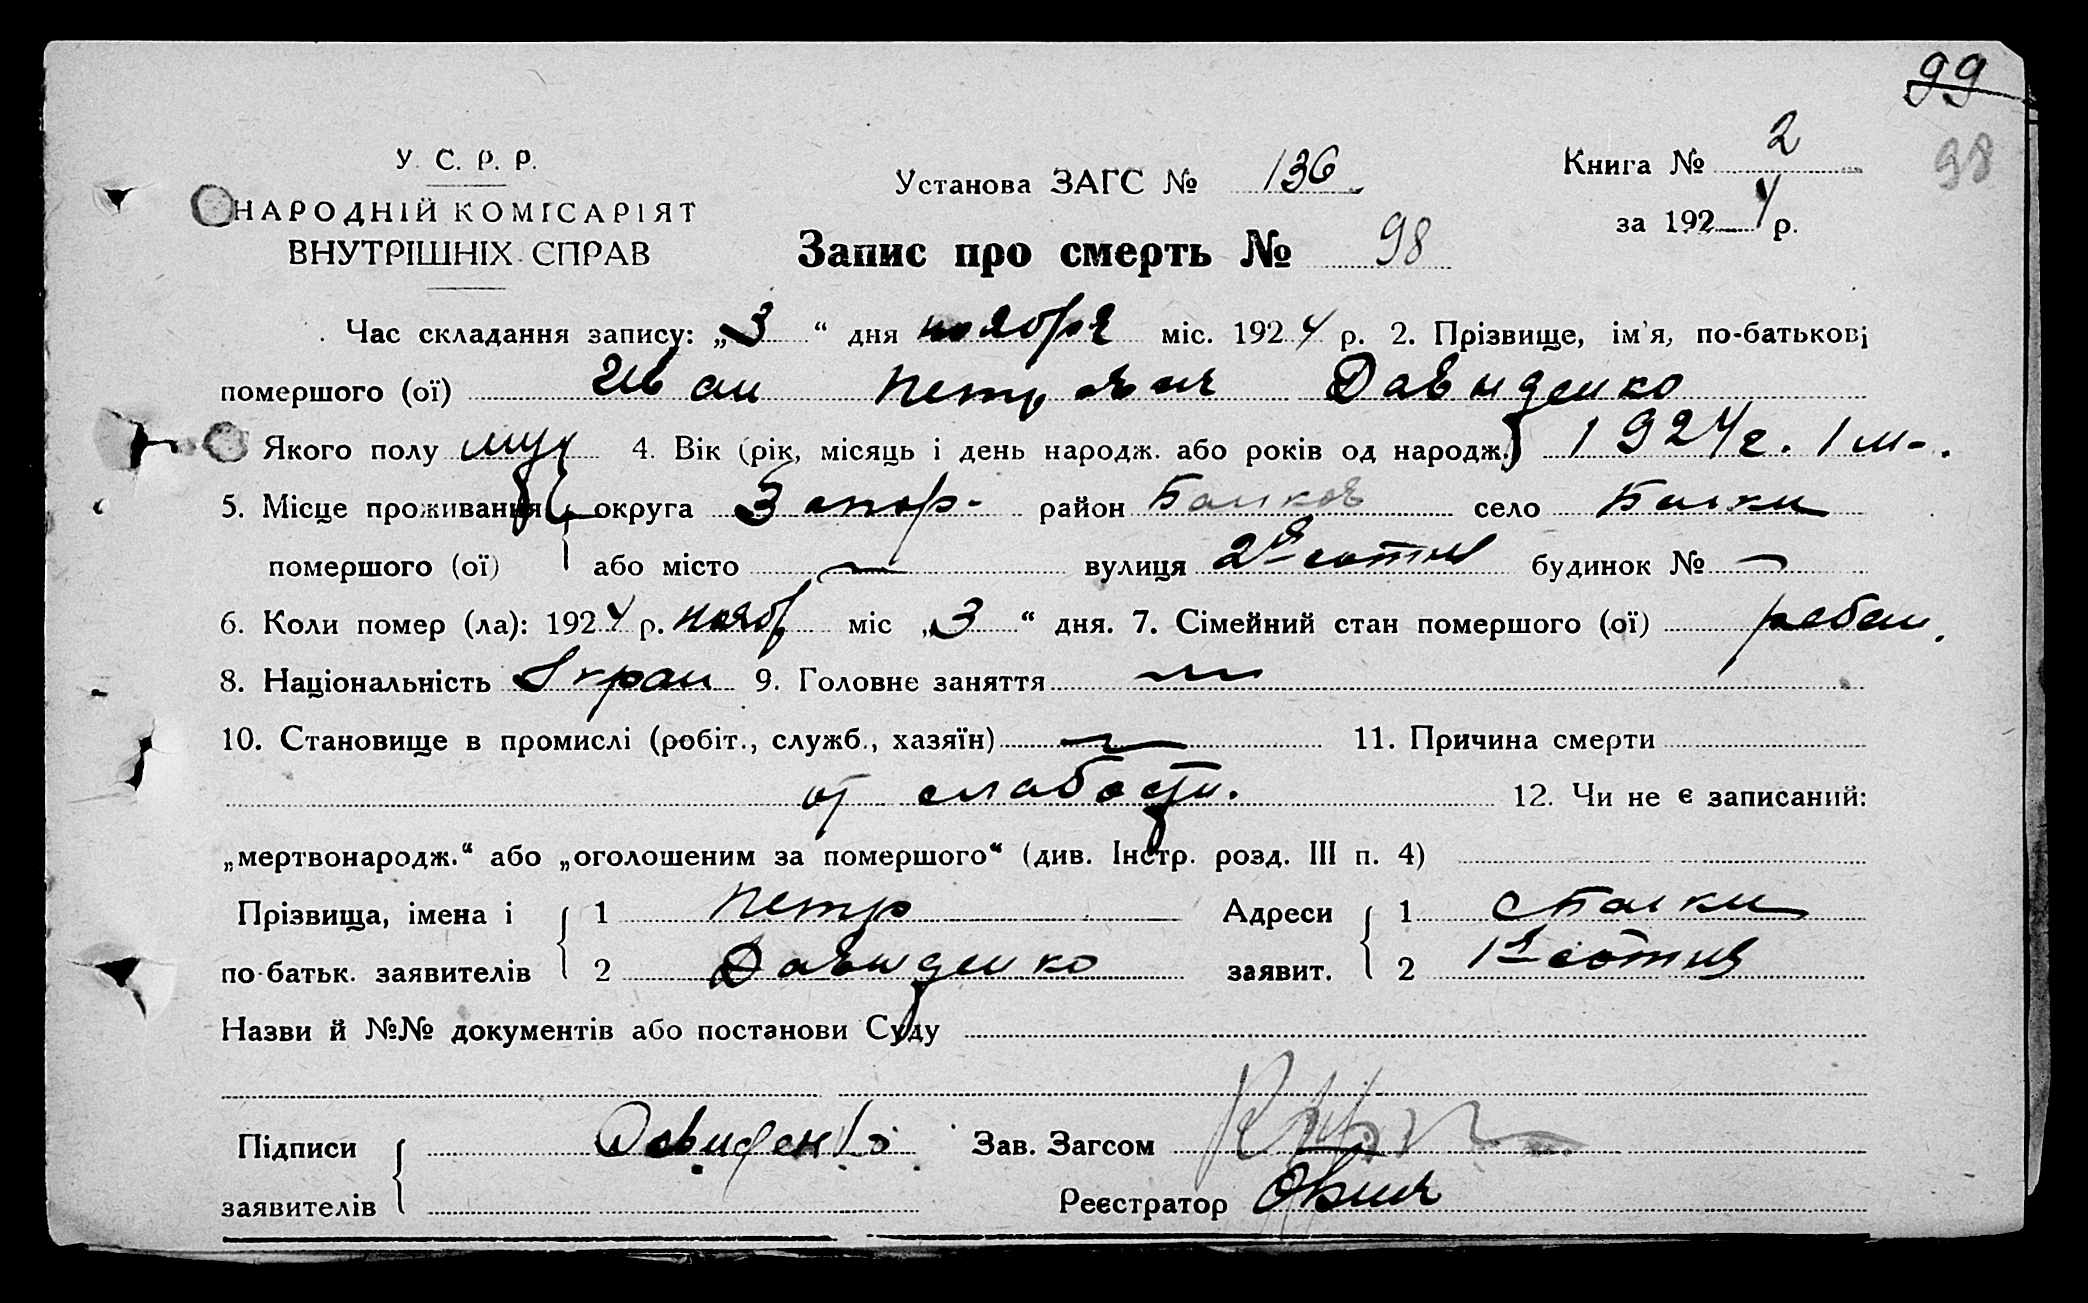 99
98
У. С. Р. Р.
НАРОДНІЙ КОМІСАРІЯТ
ВНУТРІШНІХ СПРАВ
Установа ЗАГС № 136
Книга № 2
за 1924 р.
Запис про смерть № 98
Час складання запису: „3“ дня ноября міс. 1924 р. 2. Прізвище, ім'я, по-батькові
помершого (ої) Иван Петрович Давиденко
Якого полу муж 4. Вік (рік, місяць і день народж. або років од народж.) 1924 г. 1 м.
5. Місце проживання округа Запор- район Балков село Балки
помершого (ої) або місто — вулиця 2я сотня будинок № —
6. Коли помер (ла): 1924 р. нояб міс „3“ дня. 7. Сімейний стан помершого (ої) ребен.
8. Національність Украин 9. Головне заняття —
10. Становище в промислі (робіт., служб., хазяїн) — 11. Причина смерти
от слабости. 12. Чи не є записаний:
„мертвонародж.“ або „оголошеним за помершого“ (див. Інстр. розд. III п. 4)
Прізвища, імена і 1 Петр Адреси 1 с Балки
по-батьк. заявителів 2 Давиденко заявит. 2 1я сотня
Назви й №№ документів або постанови Суду
Підписи Давиденко Зав. Загсом
заявителів Реєстратор